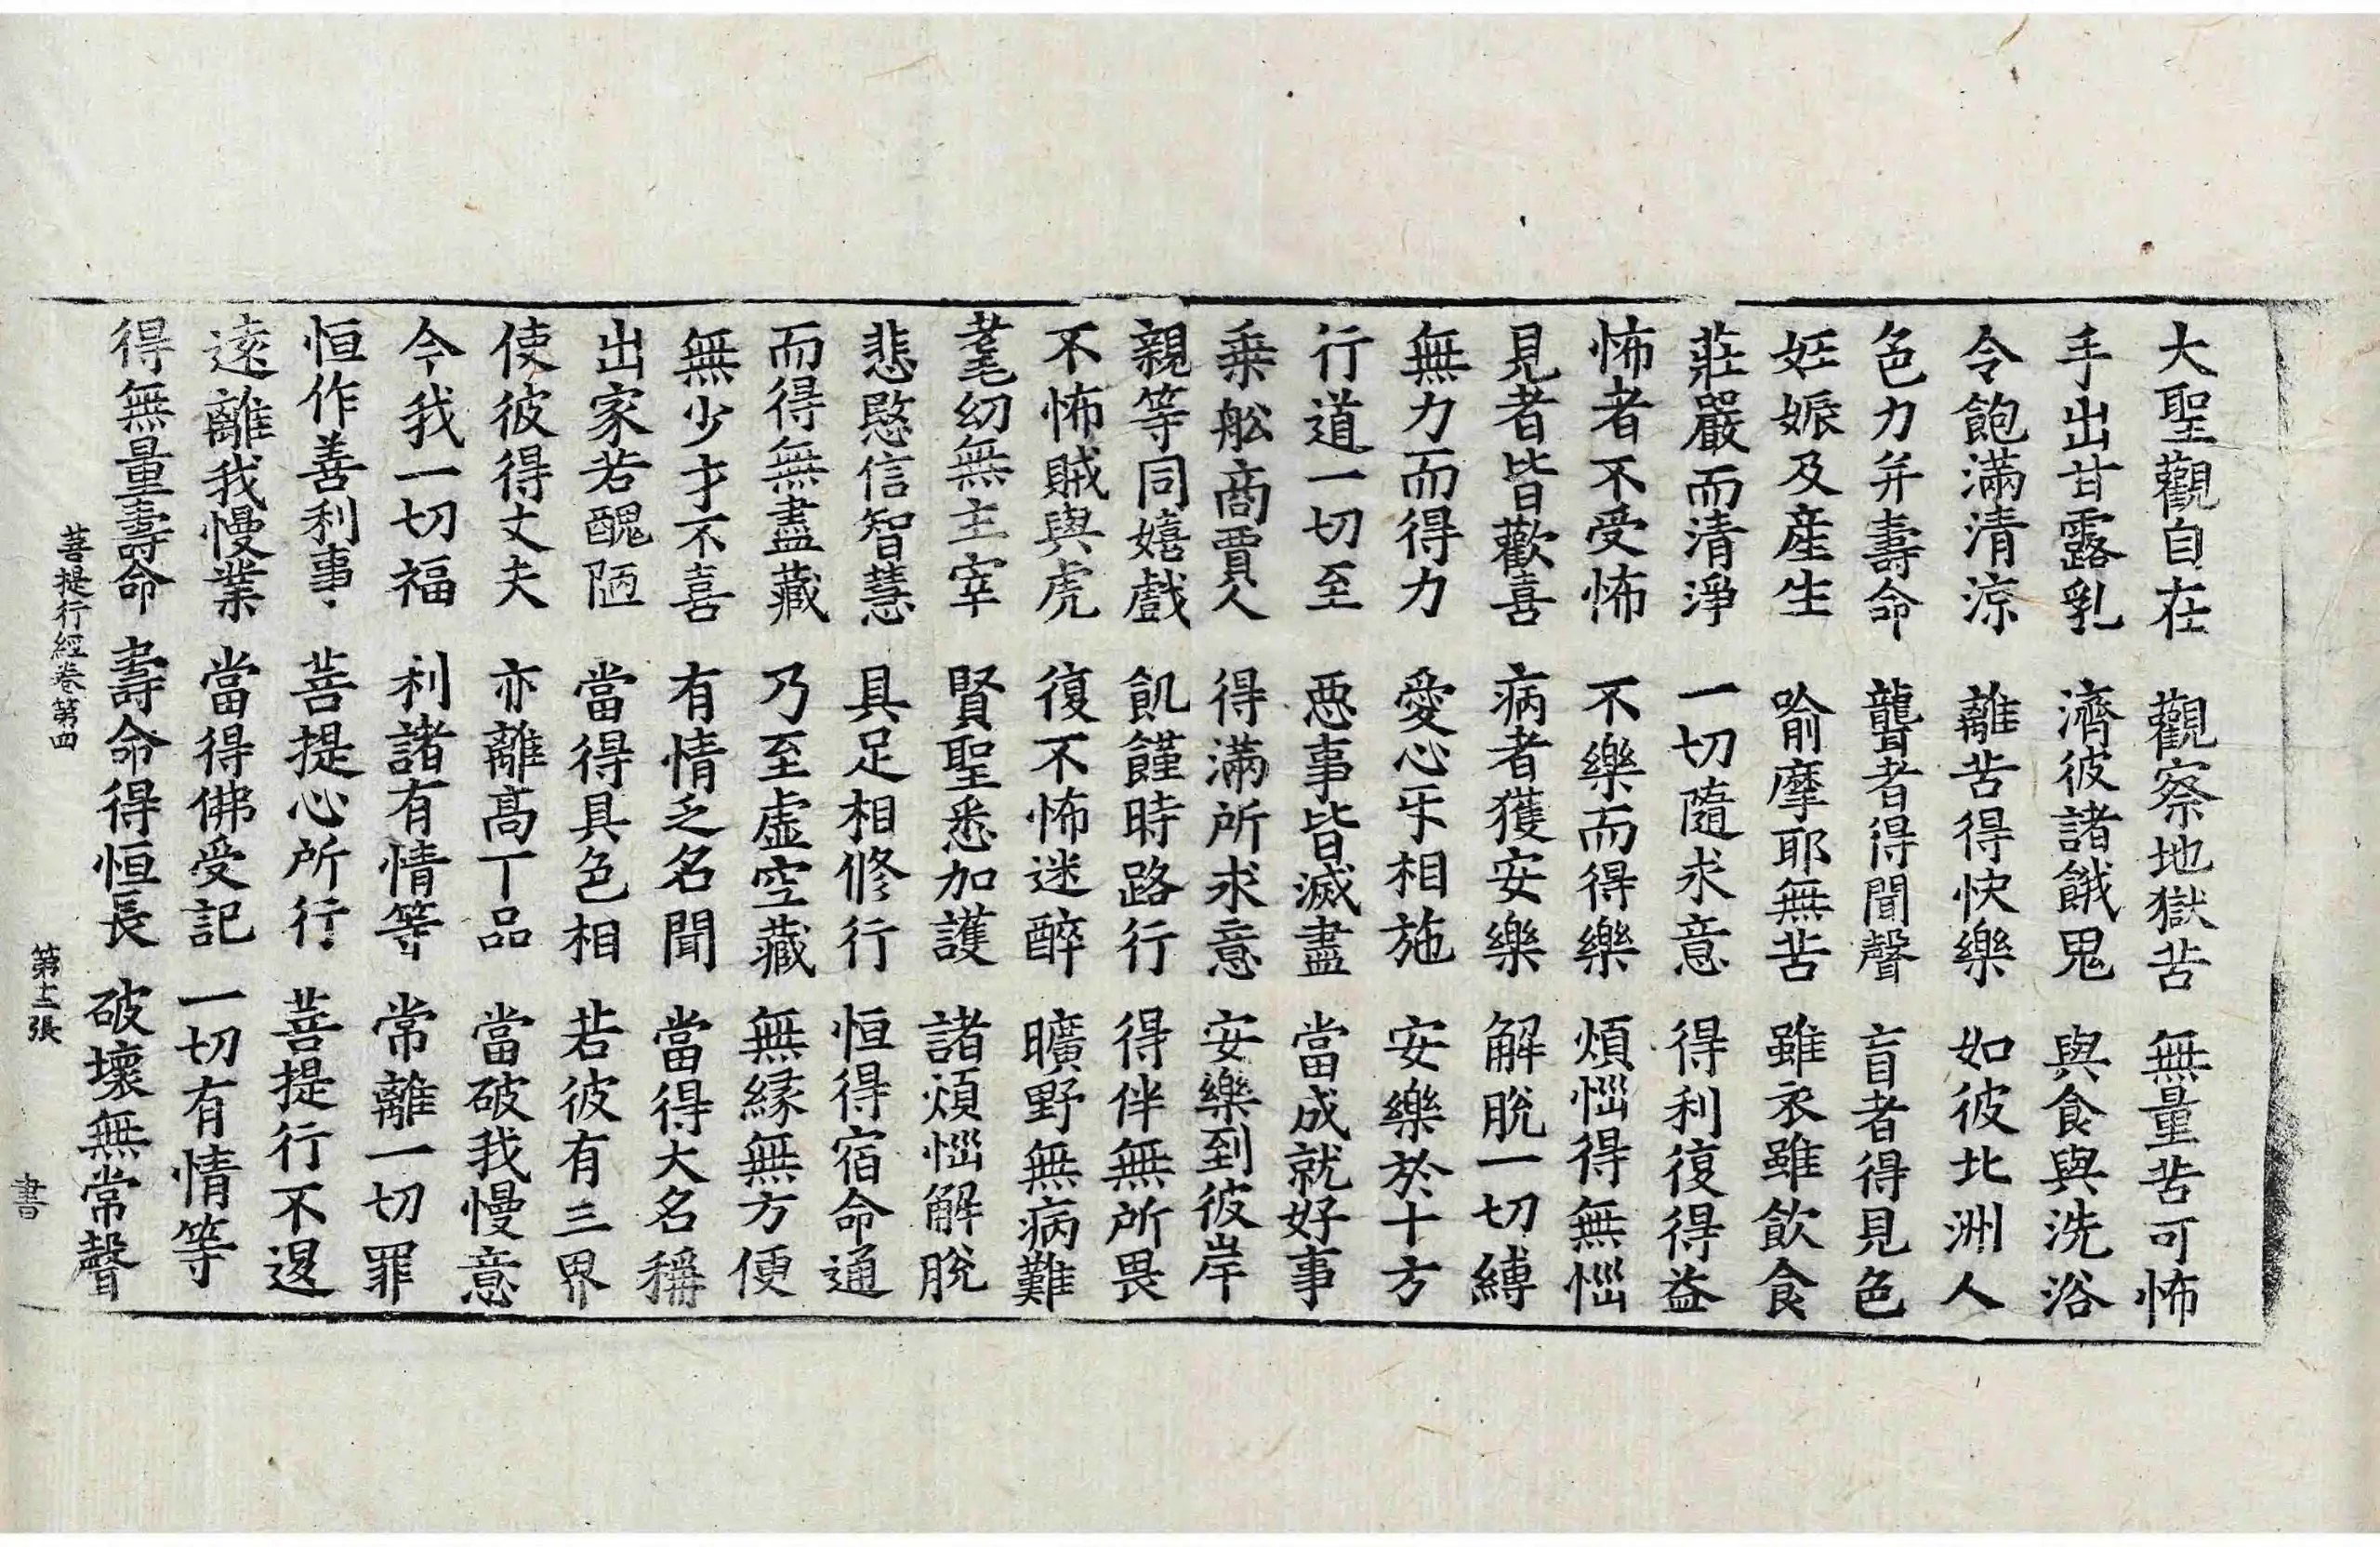 大聖觀自在 觀察地獄苦 無量苦可怖
手出甘露乳 濟彼諸餓鬼 與食與洗浴
令飽滿清涼 離苦得快樂 如彼北洲人
色力并壽命 聾者得聞聲 盲者得見色
妊娠及產生 喻摩耶無苦 雖衣雖飲食
莊嚴而清淨 一切隨求意 得利復得益
怖者不受怖 不樂而得樂 煩惱得無惱
見者皆歡喜 病者獲安樂 解脫一切縛
無力而得力 愛心互相施 安樂於十方
行道一切至 惡事皆滅盡 當成就好事
乗舩商賈人 得滿所求意 安樂到彼岸
親等同嬉戲 飢饉時路行 得伴無所畏
不怖賊與虎 復不怖迷醉 曠野無病難
耄幼無主宰 賢聖悉加護 諸煩惱解脫
悲愍信智慧 具足相修行 恒得宿命通
而得無盡藏 乃至虛空藏 無緣無方便
無少才不喜 有情乏名聞 當得大名稱
出家若醜陋 當得具色相 若彼有三界
使彼得丈夫 亦離高下品 當破我慢意
今我一切福 利諸有情等 常離一切罪
恒作善利事 菩提心所行 菩提行不退
遠離我慢業 當得佛受記 一切有情等
得無量壽命 壽命得恒長 破壞無常聲
菩提行經卷第四 第十二張 書